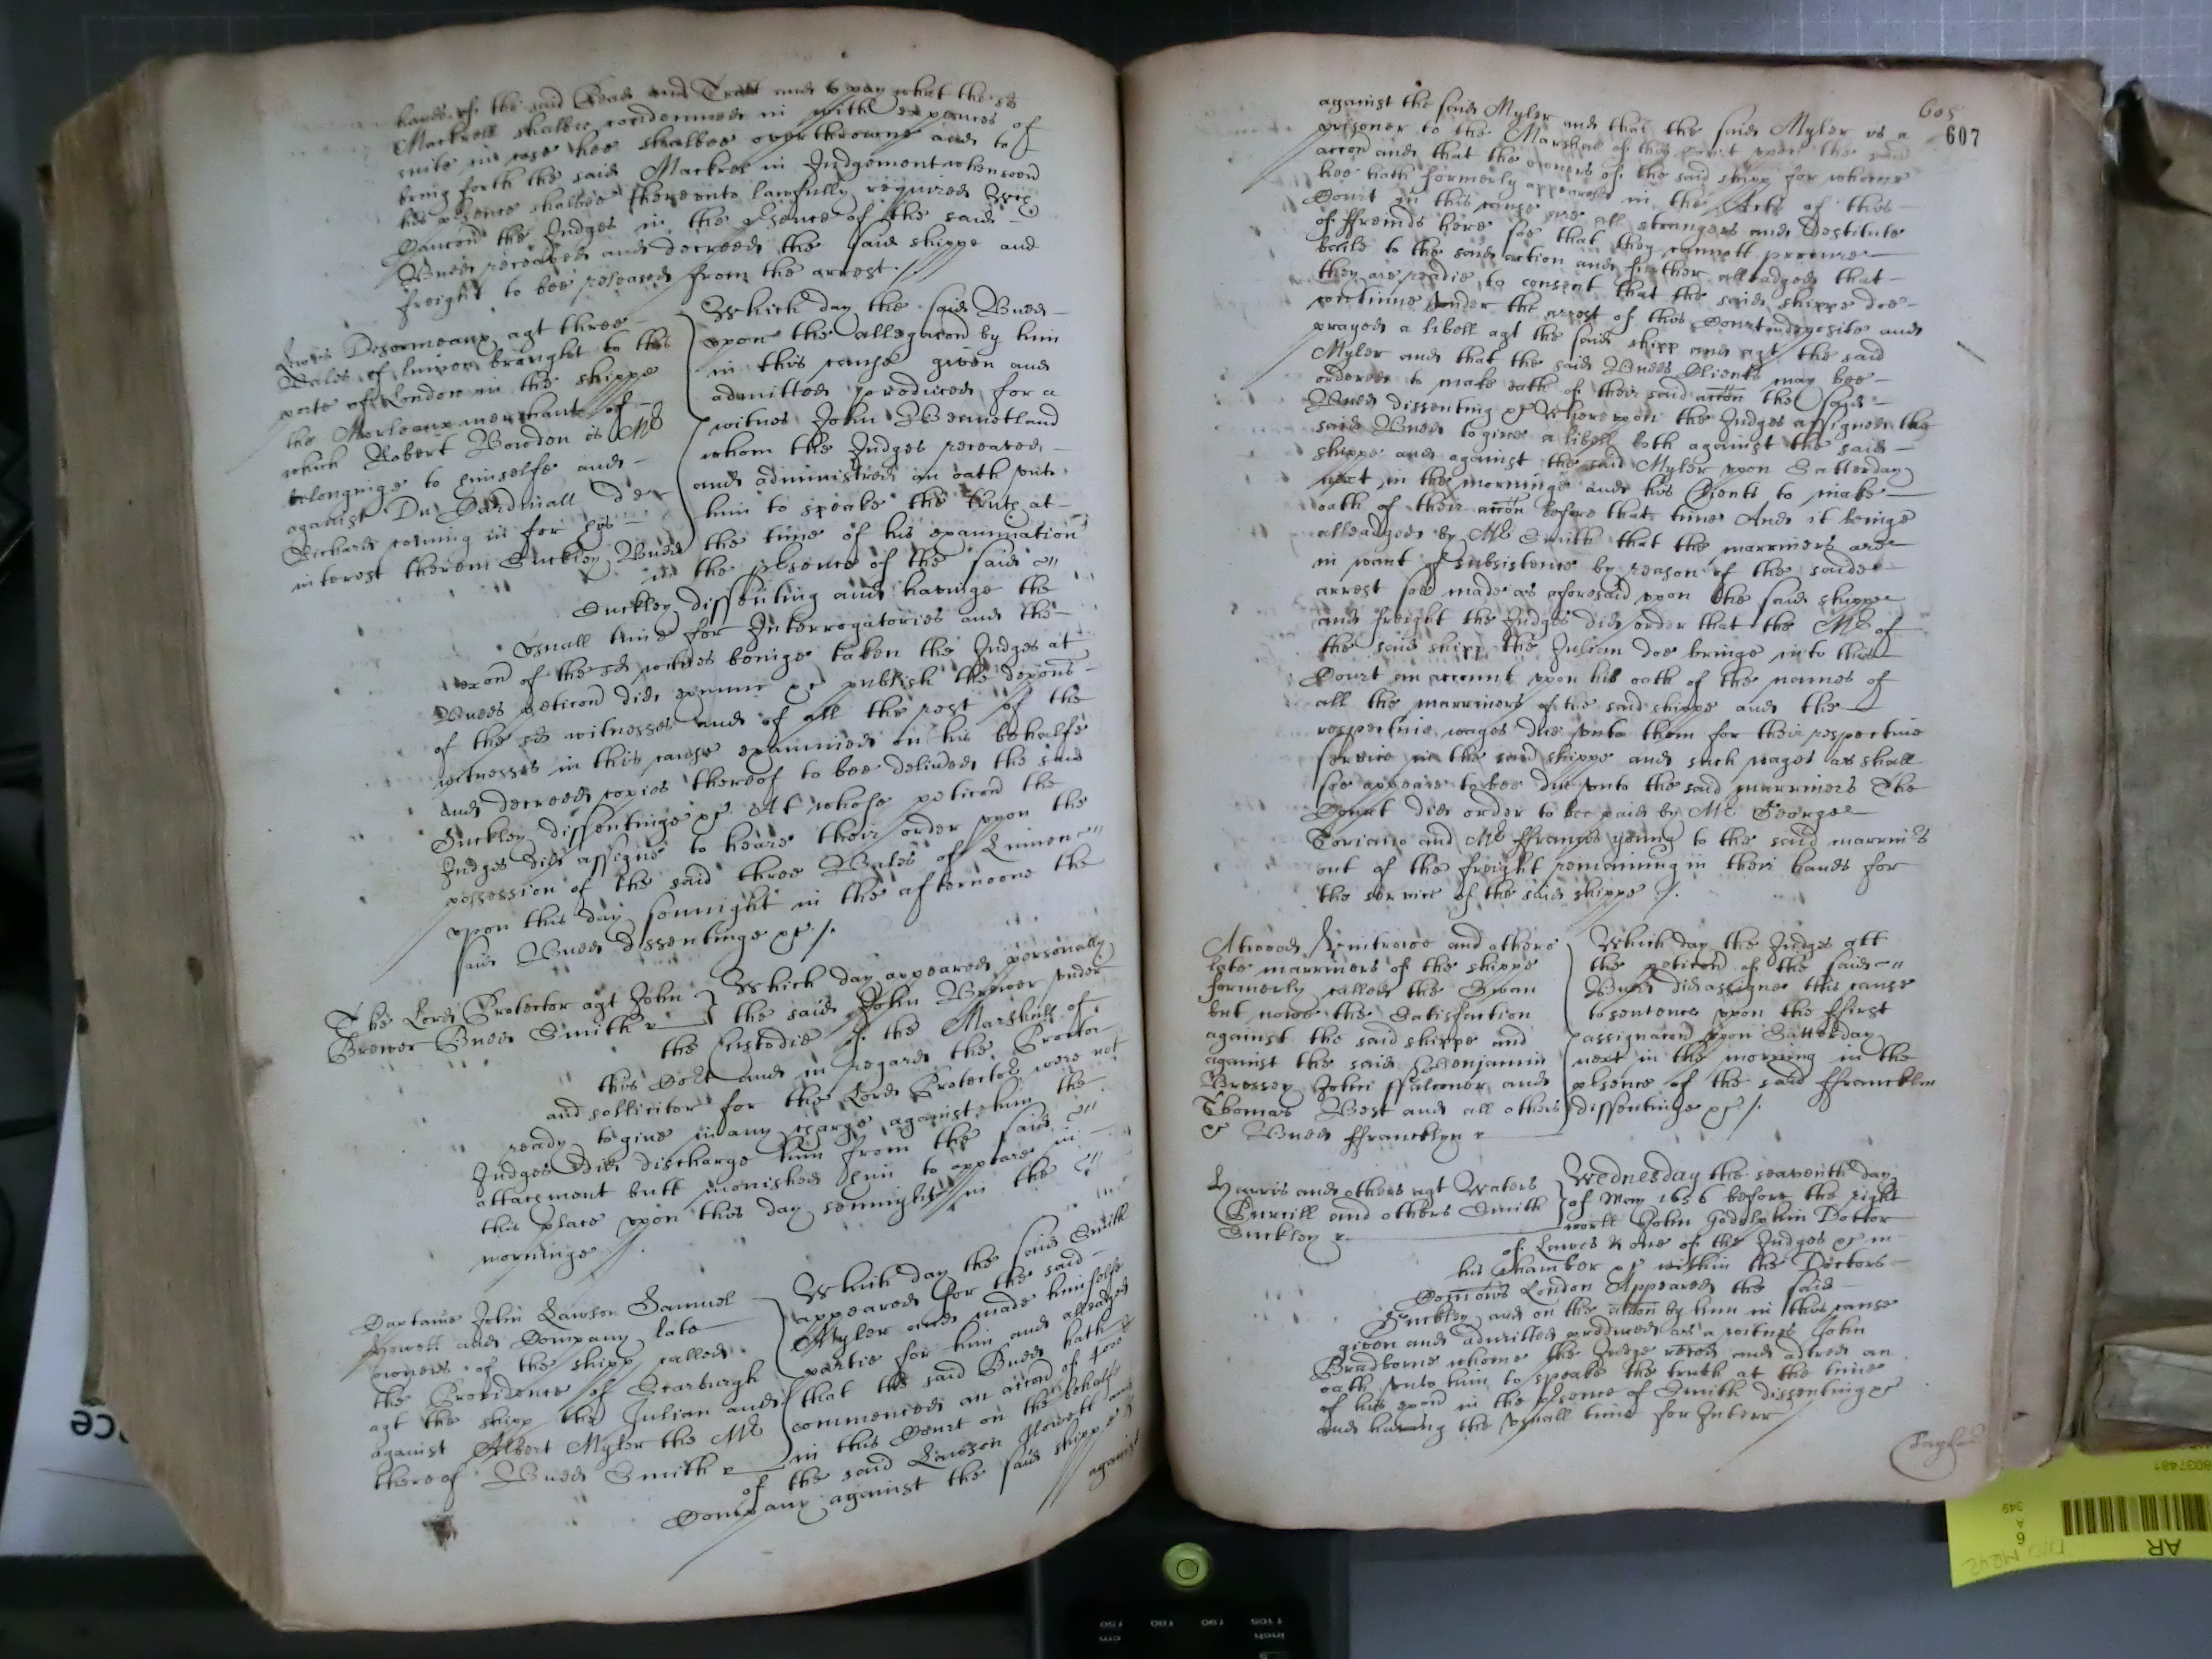 hands of the said Reads and Tratt and to pay what the sd
Mackrell shalbee condemned in with expences of
suite in case hee shalbee overthrowne and to
bring forth the said Mackrel in Judgement when soev
his psence shalbee thereunto lawfully required
the Judges in the psence of the said
Budd received and decreed the said shippe and
freight to bee released from the arrest
Lewis Desormeaux agt three
Bales of linnen brought to the
porte of London in the shippe
the merchant of
which Robert Bowdon is Mr
belonginge to himselfe and
against Du Gardinall de
Richard coming in for his
interest therein Suckley Budd
Which day the said Budd
upon the allegacon by him
in this cause given and
admitted produced for a
witnes John
whom the Judges received
and administred an oath unto
him to speake the truth at
the time of his examination
in the psence of the said
Suckley dissenting and havinge the
usuall time for Interrogatories and the
exon of the sd witnes beinge taken the Judges at
Budds peticon did publish the depons
of the sd witnesses and of all the rest of the
witnesses in this cause examined on his behalfe
and decreed copies thereof to bee delivered the said
Suckley dissentinge At whose peticon the
Judges did assigne to heare their order upon the
possession of the said three Bales of Linnen
upon this day sennight in the afternoone the
said Budd dissentinge
The Lord Protector agt John
Brower Budd Smith
Which day appeared personally
the said John Brower under
the Custodie of the Marshall of
this Cort and in regard the Proctor
and sollicitor for the Lord Protector were not
ready to give in any charge against him the
Judges did discharge him from the said
attachment butt monished him to appeare in
this place upon this day sennight in the
morninge
Captaine John Lawson Samuel
Howett and Company late
owners of the shipp called
the Providence of Scarburgh
agt the shipp the Julian and
against Albert Myler the Mr
thereof Budd Smith
Which day the said Smith
appeared for the said
Myler and made himselfe
partie for him and alleadged
that the said Budd hath
commenced an accon of
in this Court on the behalfe
of the said Lawson Howett and
Company against the said shipp
against
605
607
against the said Myler and that the said Myler is a
prisoner to the Marshall of this Court upon the said
accon and that the owners of the said shipp for whome
hee hath formerly appeared in the Acts of this
Court in this cause are all strangers and destitute
of ffreinds here soe that they cannott procure
baile to the said action and further alleadged that
they are readie to consent that the said shippe doe
continue under the arrest of this Court and
prayed a libell agt the said shipp and agt the said
Myler and that the said Budds Clients may bee
ordered to make oath of their said accon the said
Budd dissenting Whereupon the Judges assigned the
said Budd to give a libell both against the said
shippe and against the said Myler upon Satterday
next in the morninge and his Clients to make
oath of their accon before that time And it beinge
alleadged by Mr Smith that the marriners are
in want of subsistence by reason of the saide
arrest soe made as aforesaid upon the said shippe
and freight the Judges did order that the Mr of
the said shipp the Julian doe bringe into this
Court an account upon his oath of the names of
all the marriners of the said shippe and the
respective wages due unto them for their respective
service in the said shippe and such wages as shall
soe appeare to bee due unto the said marriners The
Court did order to bee paid by Mr George
Toriano and Mr ffrancis young to the said marrinrs
out of the freight remaining in their hands for
the service of the said shippe
Atwood and others
late marriners of the shippe
formerly called the Swan
but nowe the Satisfaction
against the said shippe and
against the said Benjamin
Bressey John ffalconer and
Thomas West and all others
Budd ffrancklyn
Which day the Judges att
the peticon of the said
Budd did assigne this cause
to sentence upon the ffirst
assignacon upon Satterday
next in the morning in the
psence of the said ffrancklin
dissentinge
Harris and others agt Waters
Purcill and others Smith
Suckley
Wednesday the seaventh day
of May 1656 before the right
worll John Godolphin Doctor
of Lawes & one of the Judges in
his Chamber within the Doctors
Comons London Appeared the said
Suckley and on the allon by him in this cause
given and admitted produced as a witnes John
Bradborne whome the Judge reced and adred an
oath unto him to speake the truth at the time
of his exon in the psence of Smith dissenting
and having the usuall time for Interr